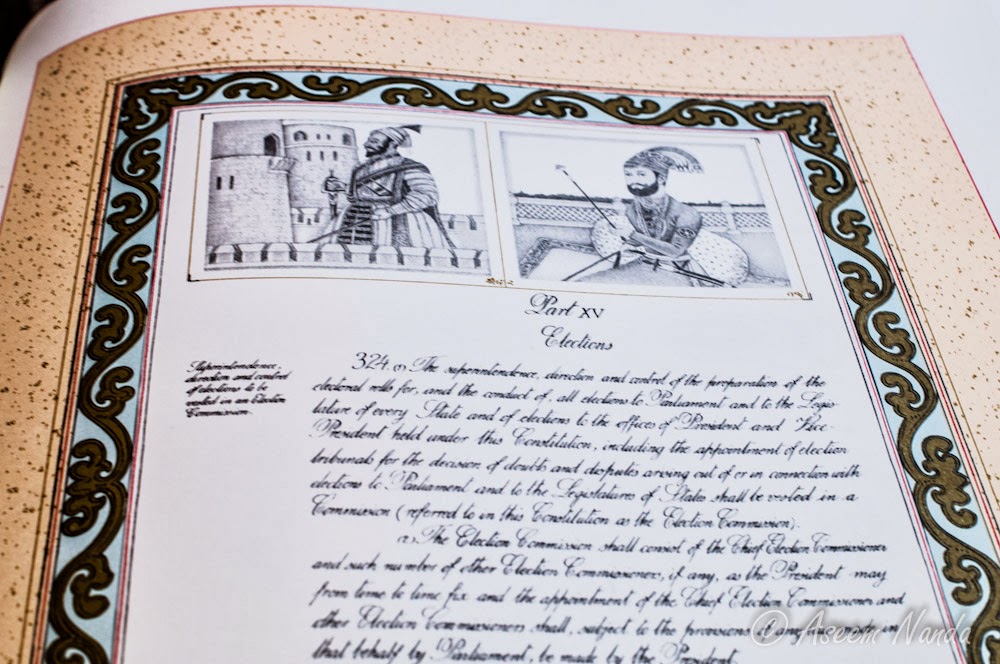 Part XV
Elections
Superintendence,
direction and control
of elections to be
vested in an Election
Commission.
324. (1) The superintendence, direction and control of the preparation of the
electoral rolls for, and the conduct of, all elections to Parliament and to the Legis-
lature of every State and of elections to the offices of President and Vice-
President held under this Constitution, including the appointment of election
tribunals for the decision of doubts and disputes arising out of or in connection with
elections to Parliament and to the Legislatures of States shall be vested in a
Commission (referred to in this Constitution as the Election Commission).
(2) The Election Commission shall consist of the Chief Election Commissioner
and such number of other Election Commissioners, if any, as the President may
from time to time fix and the appointment of the Chief Election Commissioner and
other Election Commissioners shall, subject to the provisions
that behalf by Parliament, be made by the President.
© Aseem Nanda